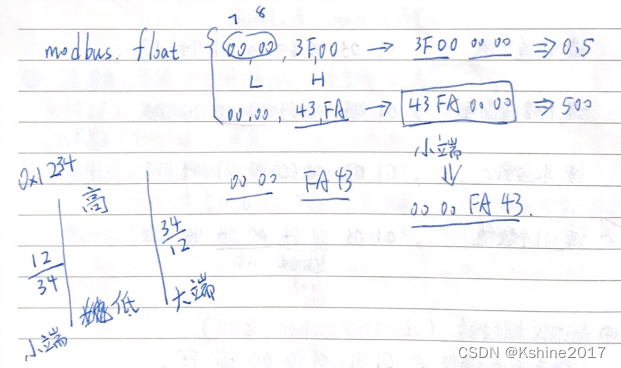 7 8
modbus. float { 00,00, 3F,00 → 3F00 00 00 ⇒ 0.5
L H
00,00, 43,FA → 43 FA 00 00 ⇒ 500
小端
⇓
00 00 FA 43 00 00 FA 43.
0x1234
高
12
34
34
12
低
小端 大端
CSDN @Kshine2017